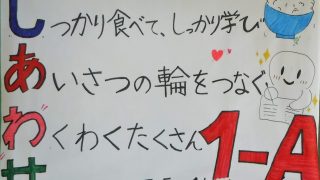 しっかり食べて、しっかり学び
あいさつの輪をつなぐ
わくわくたくさん
せ
1-A